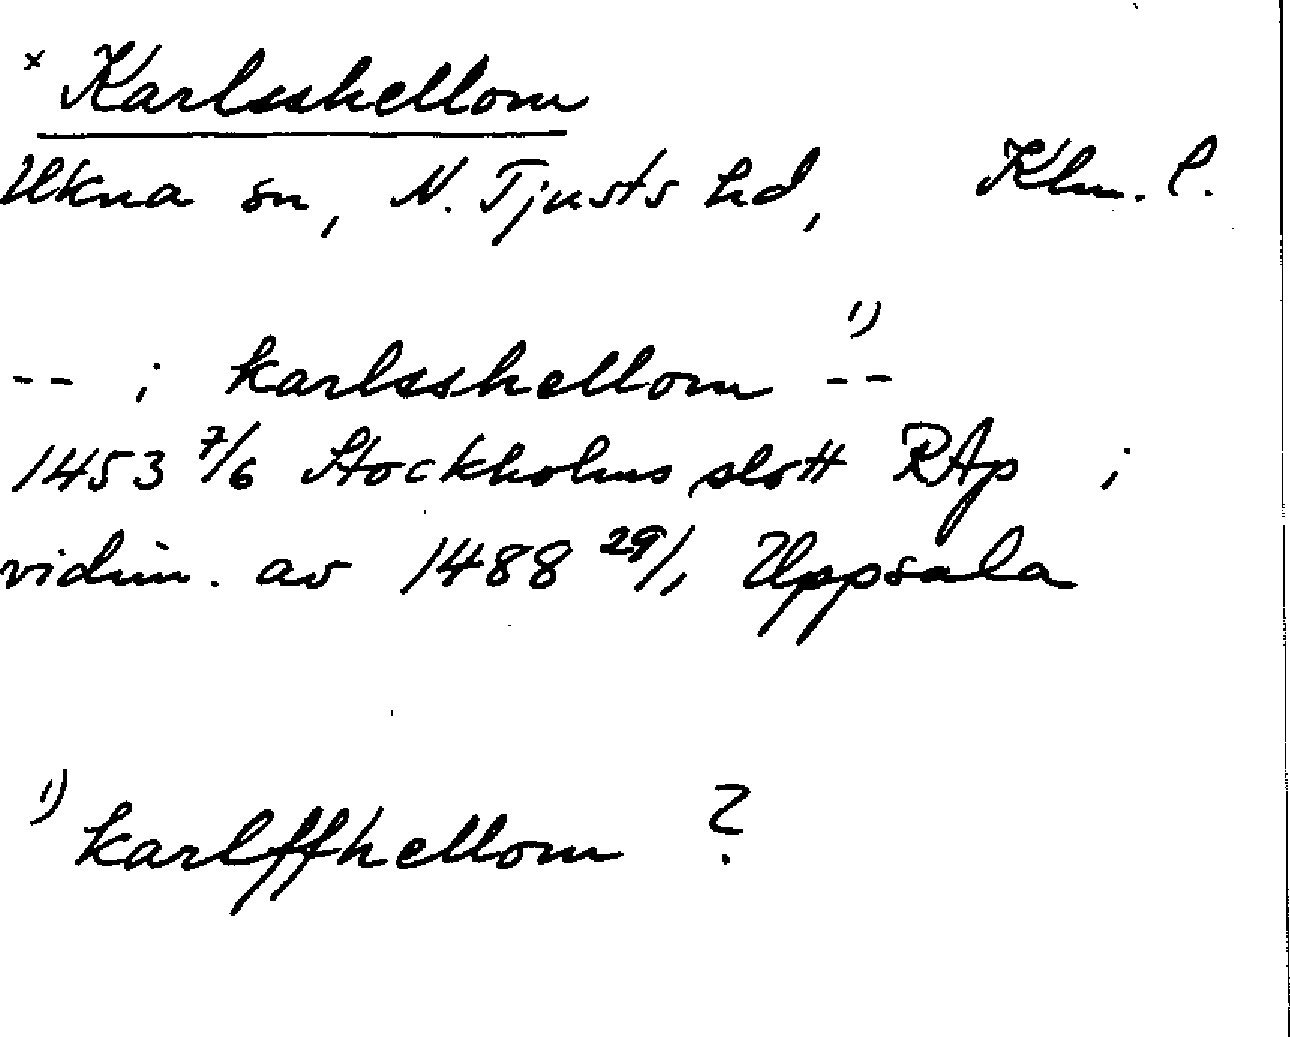 x Karlsshellom
Ukna sn, N. Tjusts hd, Klm. l.
-- i karlsshellom 1) --
1453 7/6 Stockholms slott RAp i
vidim. av 1488 29/1 Uppsala
1) karlffhellom ?